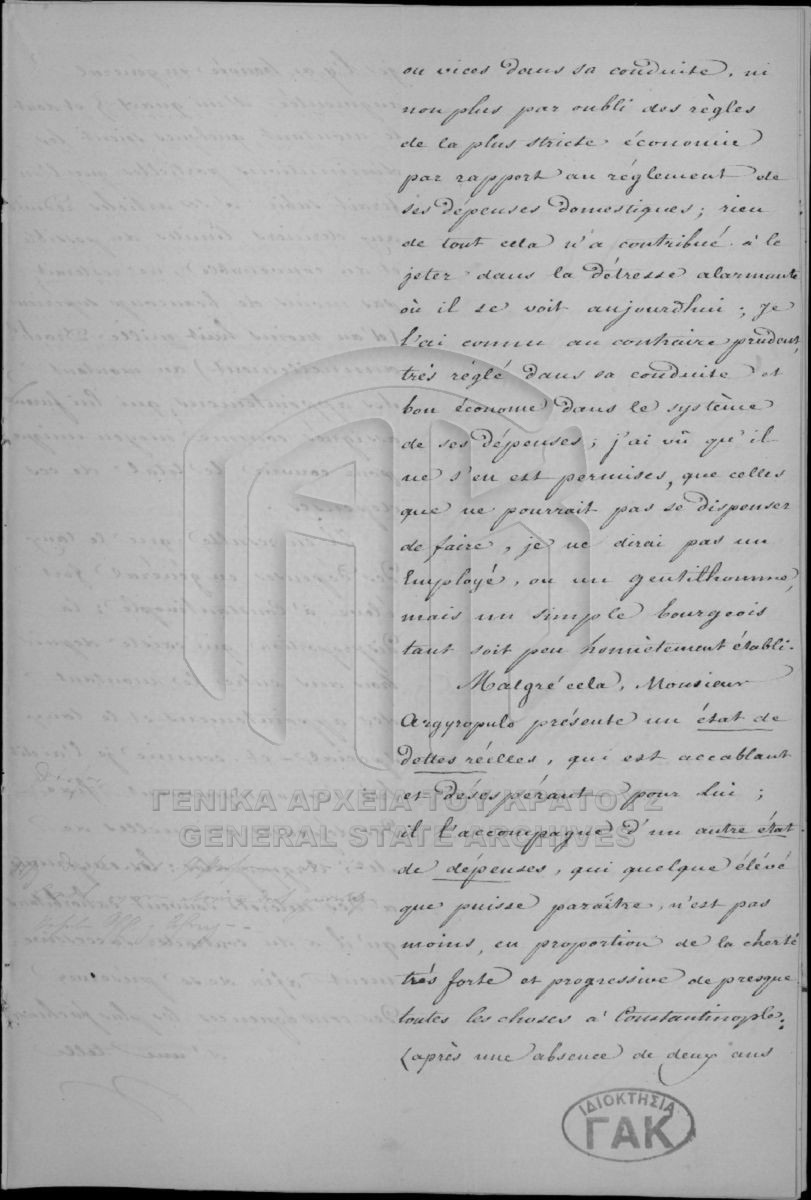 ou vices dans sa conduite, ni
non plus par oubli des règles
de la plus stricte économie
par rapport au réglement de
ses dépenses domestiques; rien
de tout cela n'a contribué à le
jeter dans la détresse alarmante
où il se voit aujourd'hui; je
l'ai connu au contraire prudent,
très réglé dans sa conduite et
bon économe dans le système
de ses dépenses; j'ai vû qu'il
ne s'en est permises, que celles
que ne pourrait pas se dispenser
de faire, je ne dirai pas un
Employé, ou un gentilhomme,
mais un simple bourgeois
tant soit peu honnêtement établi.
Malgré cela, Monsieur
Argyropulo présente un état de
dettes réelles, qui est accablant
et désespérant pour lui;
il l'accompagne d'un autre état
de dépenses, qui quelque élévé
que puisse paraître, n'est pas
moins, en proportion de la cherté
très forte et progressive de presque
toutes les choses à Constantinople:
(après une absence de deux ans
ΓΕΝΙΚΑ ΑΡΧΕΙΑ ΤΟΥ ΚΡΑΤΟΥΣ
GENERAL STATE ARCHIVES
ΙΔΙΟΚΤΗΣΙΑ
ΓΑΚ